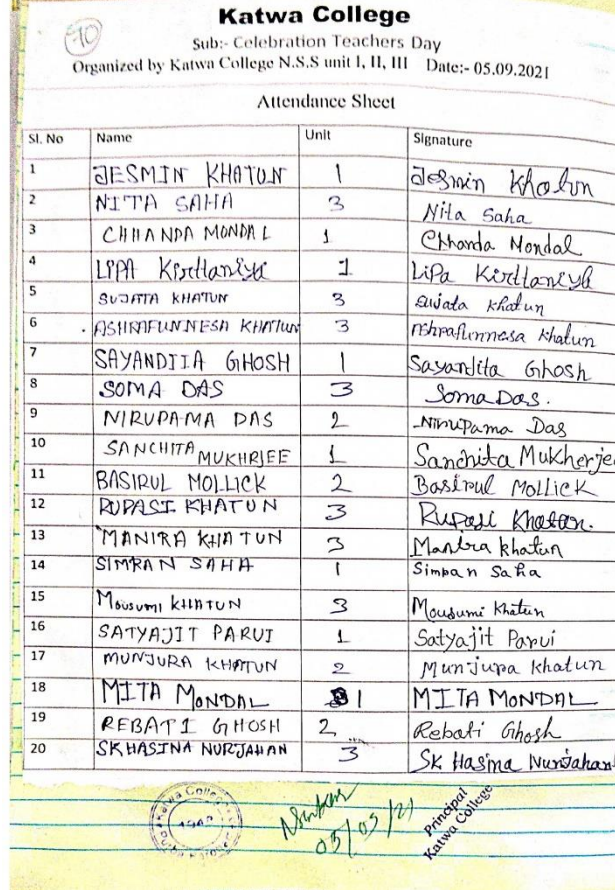 10
Katwa College
Sub:- Celebration Teachers Day
Organized by Katwa College N.S.S unit I, II, III Date:- 05.09.2021
Attendance Sheet
Sl. No Name Unit Signature
1 JESMIN KHATUN 1 Jesmin Khatun
2 NITA SAHA 3 Nita Saha
3 CHHANDA MONDAL 1 Chhanda Mondal
4 LIPA Kirttaniya 1 LiPa Kirttaniya
5 SUJATA KHATUN 3 Sujata Khatun
6 ASHRAFUNNESA KHATUN 3 Ashrafunnesa Khatun
7 SAYANDITA GHOSH 1 Sayandita Ghosh
8 SOMA DAS 3 Soma Das.
9 NIRUPAMA DAS 2 Nirupama Das
10 SANCHITA MUKHRJEE 1 Sanchita Mukherjee
11 BASIRUL MOLLICK 2 Basirul MOLLICK
12 RUPASI KHATUN 3 Rupasi Khatun.
13 MANIRA KHATUN 3 Manira khatun
14 SIMRAN SAHA 1 Simran Saha
15 Mousumi KHATUN 3 Mousumi Khatun
16 SATYAJIT PARUI 1 Satyajit Parui
17 MUNJURA KHATUN 2 Munjura Khatun
18 MITA MONDAL 1 MITA MONDAL
19 REBATI GHOSH 2 Rebati Ghosh
20 SK HASINA NURJAHAN 3 SK Hasina Nurjahan
Katwa College
1948
05/09/21
Principal
Katwa College